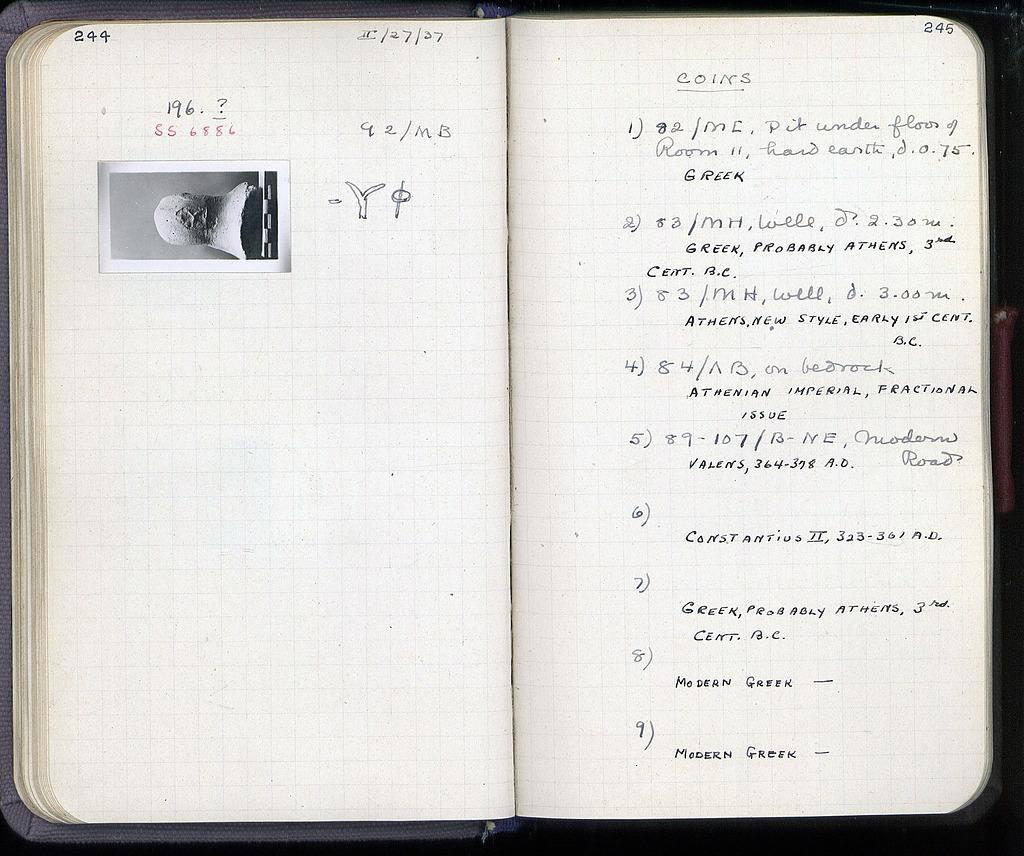 244
II/27/37
196. ?
SS 6886
92/MB
-Υ Φ
245
COINS
1) 82/ME, Pit under floor of
Room 11, hard earth, d. 0.75.
GREEK
2) 83/MH, Well, d. 2.30 m.
GREEK, PROBABLY ATHENS, 3rd
CENT. B.C.
3) 83/MH, Well, d. 3.00 m.
ATHENS, NEW STYLE, EARLY 1st CENT.
B.C.
4) 84/ΛB, on bedrock
ATHENIAN IMPERIAL, FRACTIONAL
ISSUE
5) 89-107/B-NE, Modern
Road
VALENS, 364-378 A.D.
6)
CONSTANTIUS II, 323-361 A.D.
7)
GREEK, PROBABLY ATHENS, 3rd.
CENT. B.C.
8)
MODERN GREEK —
9)
MODERN GREEK —